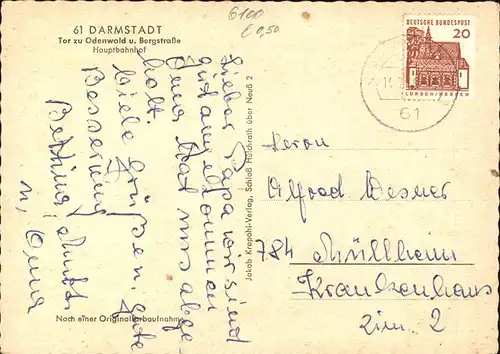 61 DARMSTADT
Tor zu Odenwald u. Bergstraße
Hauptbahnhof
6100
€ 0,50
DEUTSCHE BUNDESPOST
20
LORSCH/HESSEN
61
Lieber Papa wir sind
gut angekommen
Oma hat uns abge
holt.
Viele Grüße u. gute
Besserung
Bettina,
u. Oma
Jakob Krapohl-Verlag, Schloß Hülchrath über Neuß 2
Herrn
Alfred
784 Müllheim
Krankenhaus
Zim. 2
Nach einer Originalfarbaufnahme